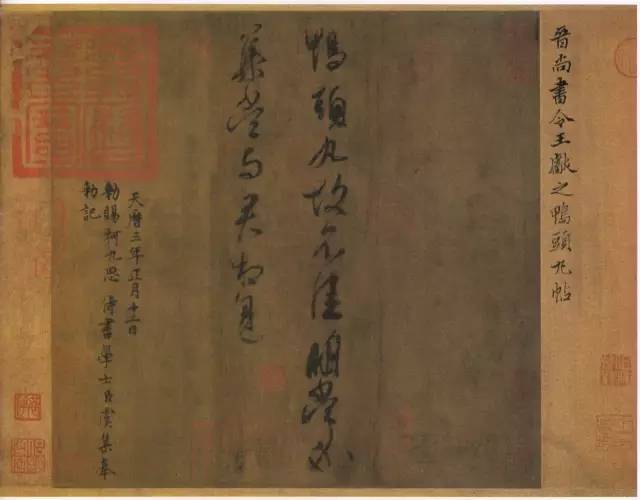 晉尚書令王獻之鴨頭丸帖
鴨頭丸故不佳明當必
集當与君相見
天曆三年正月十二日
勅賜柯九思 侍書學士臣虞集奉
勅記